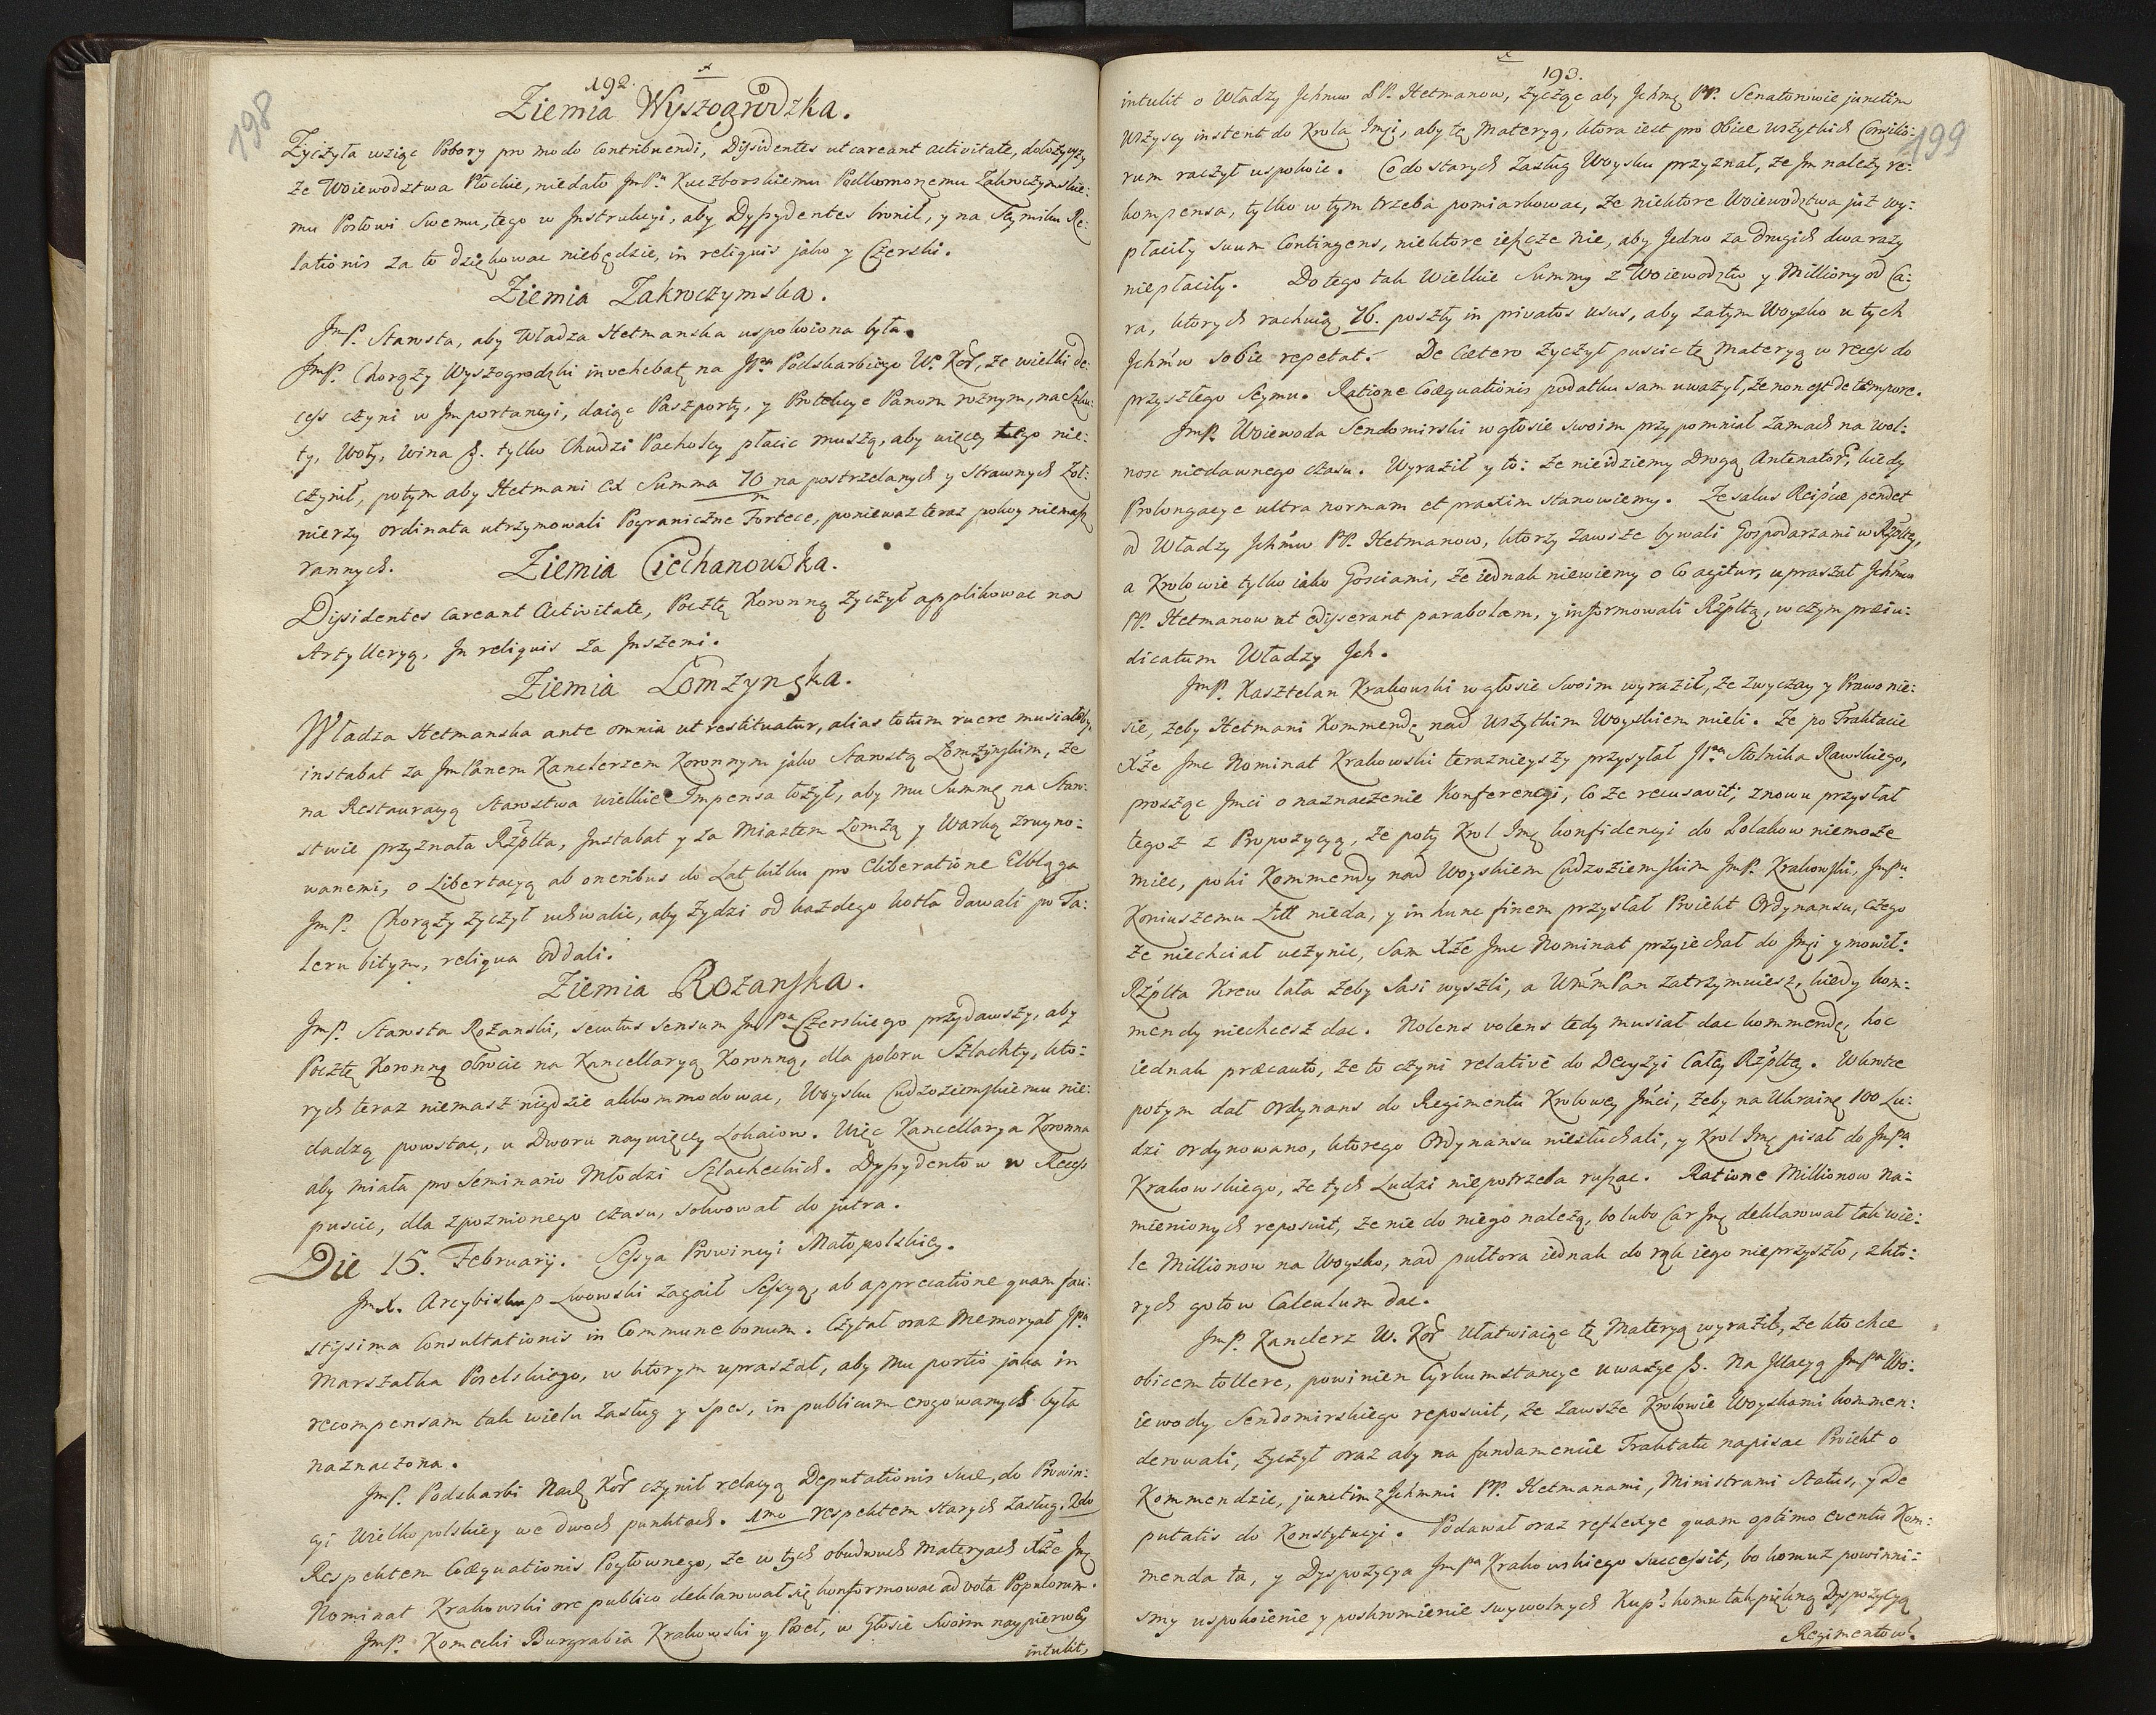 192.
198
Ziemia Wyszogrodzka.
Zyczyła wziąc Pobory pro modo Contribuendi, Dissidentes ut careant activitate, dołozywszy
ze Woiewodztwa Płockie, niedało JmPu Kuczborskiemu Podkomorzemu Zakroczymskie:
mu Posłowi Swemu, tego w Instrukcyi, aby Dyssydentes bronił, y na Seymiku Re:
lationis za to dziękowac niebędzie, in reliquis jako y Czerski.
Ziemia Zakroczymska.
JmP. Starosta, aby Władza Hetmanska uspokoiona była.
JmP. Chorązy Wyszogrodzki invehebat na JPa Podskarbiego W. Kor, ze wielki de:
cess czyni w Importancyi, daiąc Paszporty, y Protekcye Panom roznym, na Szku:
ty, Woły, Wina p. tylko Chudzi Pachołcy płacic muszą, aby więcey tego nie:
czynił, potym aby Hetmani ex Summa 70 m na postrzelanych y strawnych Zoł:
nierzy ordinata utrzymowali Pograniczne Fortece, poniewaz teraz pokoy niemasz
rannych.
Ziemia Ciechanowska.
Dissidentes careant Activitate, Pocztę Koronną zyczył applikowac na
Artylleryą, In reliquis za Inszemi.
Ziemia Łomzynska.
Władza Hetmanska ante omnia ut restituatur, alias totum ruere musiałoby,
instabat za JmPanem Kanclerzem Koronnym jako Starostą Łomzynskim, ze
na Restauracyą Starostwa wielkie Impensa łozył, aby mu Summę na Staro:
stwie przyznała Rzplta, Instabat y za Miastem Łomzą y Warką zruyno:
wanemi, o Libertacyą ab oneribus do Lat kilku pro Eliberatione Elbląga
JmP. Chorązy zyczył uchwalic, aby Zydzi od kazdego kotła dawali po Ta:
leru bitym, reliqua oddali.
Ziemia Rozanska.
JmP. Starosta Rozanski, secutus sensum JmPa Czerskiego przydawszy, aby
Pocztę Koronną obrocic na Kancellaryą Koronną, dla poloru Szlachty, kto:
rych teraz niemasz nigdzie akkommodowac, Woysku Cudzoziemskiemu nie:
dadzą powstac, u Dworu naywięcey Lokaiow. Więc Kancellarya Koronna
aby miała pro Seminario Młodzi Szlacheckich. Dyssydentow w Recess
puscic, dla zpoznionego czasu, solwował do jutra.
Die 15. Februarij. Sessya Prowincyi Małopolskiey.
JmX. Arcybiskup Lwowski zagaił Sessyą, ab apprecatione quam fau:
stissima Consultationis in Commune bonum. Czytał oraz Memoryał JPa
Marszałka Poselskiego, w ktorym upraszał, aby mu portio jaka in
recompensam tak wielu zasług y spes, in publicum erogowanych była
naznaczona.
JmP. Podskarbi Nad Kor czynił relacyą Deputationis suæ, do Prowin:
cyi Wielkopolskiey we dwoch punktach. 1mo respektem starych Zasług. 2do
Respektem Coæquationis Pogłownego, ze w tych obudwuch Materyach Xże Jmę
Nominat Krakowski ore publico deklarował się konformowac ad vota Populorum.
JmP. Komecki Burgrabia Krakowski y Poseł, w Głosie Swoim naypierwey
intulit,
193.
199
intulit o Władzy Ichmw PP. Hetmanow, zycząc aby Ichmę PP. Senatorowie junctim
wszyscy instent do Krola Jmci, aby tę Materyą, ktora iest pro obice wszytkich Consilio:
rum raczył uspokoic. Co do starych Zasług Woysku przyznał, ze Im nalezy re:
kompensa, tylko w tym trzeba pomiarkowac, ze niektore Woiewodztwa juz wy:
płaciły suum Contingens, niektore ieszcze nie, aby Jedno za drugich dwa razy
niepłaciły. Do tego tak Wielkie Summy z Woiewodztw y Milliony od Ca:
ra, ktorych rachuią 76. poszły in privatos usus, aby zatym Woysko u tych
Ichmw sobie repetat. De Cætero zyczył puscic tę Materyą w recess do
przyszłego Seymu. Ratione Coæquationis podatku sam uwazył, ze non est de tempore.
JmP. Woiewoda Sendomirski w głosie swoim przypomniał Zamach na wol:
nosc niedawnego czasu. Wyraził y to: ze nieidziemy Drogą Antenator, kiedy
Prolongacye ultra normam et praxim stanowiemy. Ze salus Reipcæ pendet
od Władzy Ichmw PP. Hetmanow, ktorzy zawsze bywali Gospodarzami w Rzpltey,
a Krolowie tylko iako Gosciami, ze iednak niewiemy o Co agitur, upraszał Ichmw
PP. Hetmanow ut edisserant parabolam, y informowali Rzpltą, w czym præiu:
dicatum Władzy Ich.
JmP. Kasztelan Krakowski w głosie Swoim wyraził, ze zwyczay y Prawo nie:
sie, zeby Hetmani Kommendę nad wszytkim Woyskiem mieli. Ze po Traktacie
Xże Jmc Nominat Krakowski teraznieyszy przysyłał JPa Stolnika Rawskiego,
prosząc Jmci o naznaczenie Konferencyi, Co ze recusavit; znowu przysłał
tegoz z Propozycyą, ze poty Krol Jmę konfidencyi do Polakow niemoze
miec, poki Kommendy nad Woyskiem Cudzoziemskim JmP. Krakowski, JmPu
Koniuszemu Litt nieda, y in hunc finem przysłał Proiekt Ordynansu, czego
ze niechciał uczynic, Sam Xże Jmc Nominat przyiechał do Jmci y mowił:
Rzplta Krew lała zeby Sasi wyszli, a WmmPan zatrzymuiesz, kiedy kom:
mendy niechcesz dac. Nolens volens tedy musiał dac kommendę, hoc
iednak præcauto, ze to czyni relativè do Decyzyi Całey Rzpltey. Wkrotce
potym dał ordynans do Regimentu Krolowey Jmci, zeby na Ukrainę 100 Lu:
dzi ordynowano, ktorego Ordynansu niesłuchali, y Krol Jmę pisał do JmPa
Krakowskiego, ze tych Ludzi niepotrzeba ruszac. Ratione Millionow na:
mienionych reposuit, ze nie do niego nalezą, bo lubo Car Jmę deklarował tak wie:
le Millionow na Woysko, nad pułtora iednak do rąk iego nieprzyszło, z kto:
rych gotow Calculum dac.
JmP. Kanclerz W. Kor ułatwiaiąc tę Materyą wyraził, ze kto chce
obicem tollere, powinien Cyrkumstancye uwazyc p. Na Illacyą JmPa Wo:
iewody Sendomirskiego reposuit, ze zawsze Krolowie Woyskami kommen:
derowali, zyczył oraz aby na fundamencie Traktatu napisac Proiekt o
Kommendzie, junctim z Ichmmi PP. Hetmanami, Ministrami Status, y De
putatis do Konstytucyi. Podawał oraz reflexye quam optimo eventu Kom:
menda ta, y Dyspozycya JmPa Krakowskiego successit, bo komuz powinni:
smy uspokoienie y poskromienie swywolnych Kup? komu tak piękną Dyspozycyą
Regimentow?